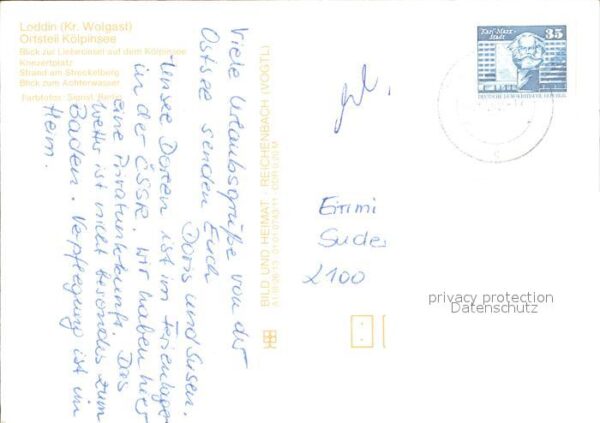 Loddin (Kr. Wolgast)
Ortsteil Kölpinsee
Blick zur Liebesinsel auf dem Kölpinsee
Konzertplatz
Strand am Streckelberg
Blick zum Achterwasser
Farbfotos: Sigrist, Berlin
Viele Urlaubsgrüße von der
Ostsee senden Euch
Doris und Susen.
Unsere Doreen ist im Ferienlager
in der ČSSR. Wir haben hier
eine Privatunterkunft. Das
Wetter ist nicht besonders zum
Baden. Verpflegung ist im
Heim.
BILD UND HEIMAT REICHENBACH (VOGTL)
DDR 0,20 M
Karl-Marx-
Stadt
35
DEUTSCHE DEMOKRATISCHE REPUBLIK
gel.
2100
privacy protection
Datenschutz